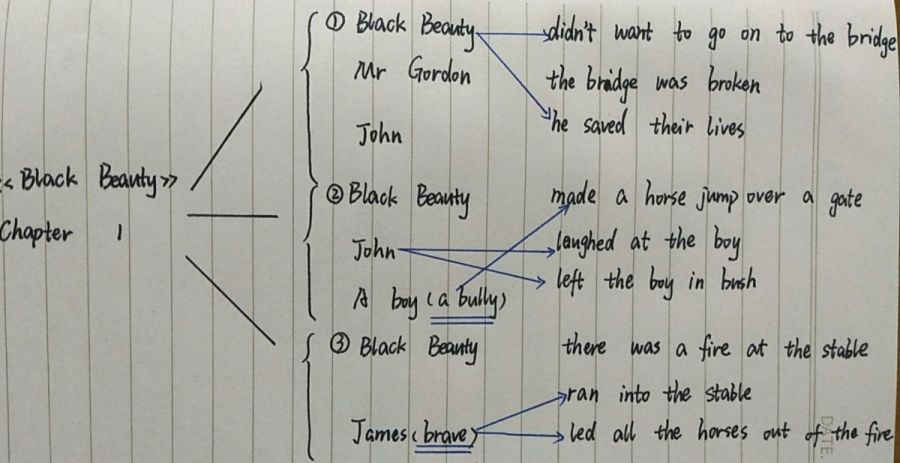 ① Black Beauty didn't want to go on to the bridge
Mr Gordon the bridge was broken
John he saved their lives
<< Black Beauty >>
Chapter 1
② Black Beauty made a horse jump over a gate
John laughed at the boy
A boy (a bully) left the boy in bush
③ Black Beauty there was a fire at the stable
ran into the stable
James (brave) led all the horses out of the fire
DATE